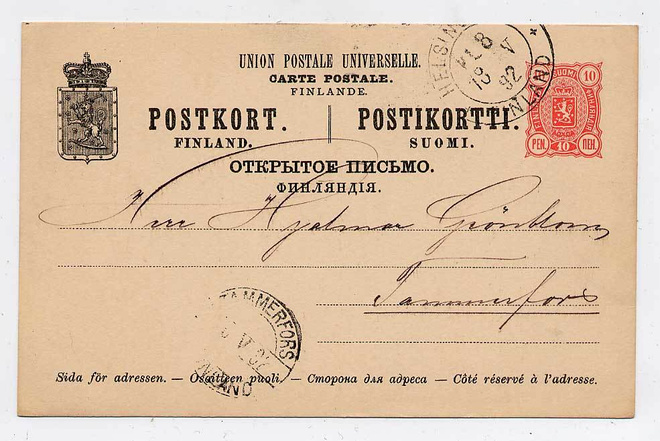 UNION POSTALE UNIVERSELLE.
CARTE POSTALE.
FINLANDE.
POSTKORT. POSTIKORTTI.
FINLAND. SUOMI.
ОТКРЫТОЕ ПИСЬМО.
ФИНЛЯНДІЯ.
SUOMI 10
PEN. 10 ПЕН.
Herr Hjalmar Grönblom
Tammerfors
TAMMERFORS
Sida för adressen. — Osoitteen puoli. — Сторона для адреса — Côté réservé à l'adresse.